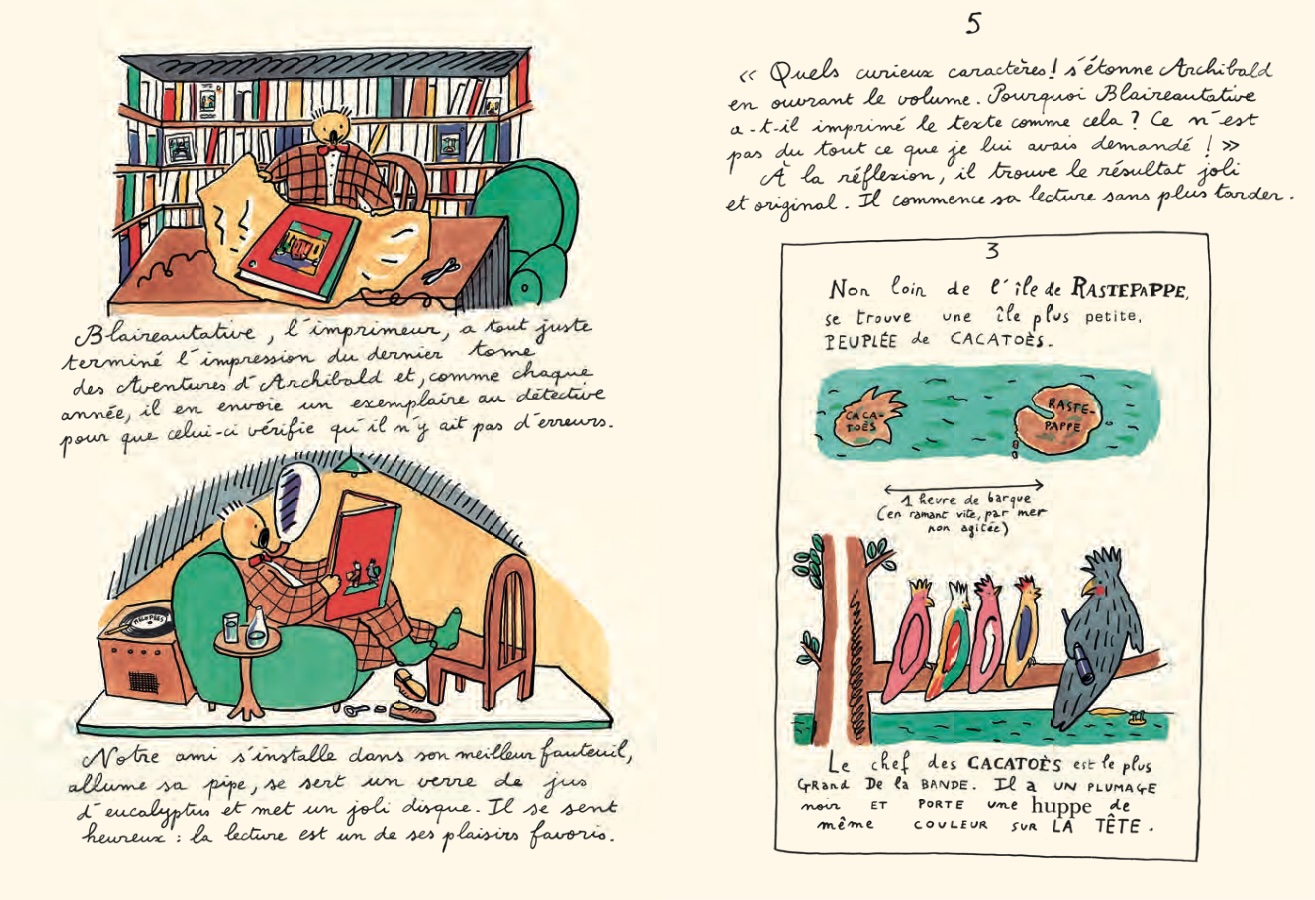 Blaireautative, l'imprimeur, a tout juste
terminé l'impression du dernier tome
des Aventures d'Archibald et, comme chaque
année, il en envoie un exemplaire au détective
pour que celui-ci vérifie qu'il n'y ait pas d'erreurs.
Notre ami s'installe dans son meilleur fauteuil,
allume sa pipe, se sert un verre de jus
d'eucalyptus et met un joli disque. Il se sent
heureux : la lecture est un de ses plaisirs favoris.
5
« Quels curieux caractères ! s'étonne Archibald
en ouvrant le volume. Pourquoi Blaireautative
a-t-il imprimé le texte comme cela ? Ce n'est
pas du tout ce que je lui avais demandé ! »
À la réflexion, il trouve le résultat joli
et original. Il commence sa lecture sans plus tarder.
3
Non loin de l'île de RASTEPAPPE,
se trouve une île plus petite,
PEUPLÉE de CACATOÈS.
CACA-
TOÈS
RASTE-
PAPPE
1 heure de barque
(en ramant vite, par mer
non agitée)
Le chef des CACATOÈS est le plus
GRAND De la BANDE. Il a UN PLUMAGE
noir ET PORTE une huppe de
même COULEUR SUR LA TÊTE.